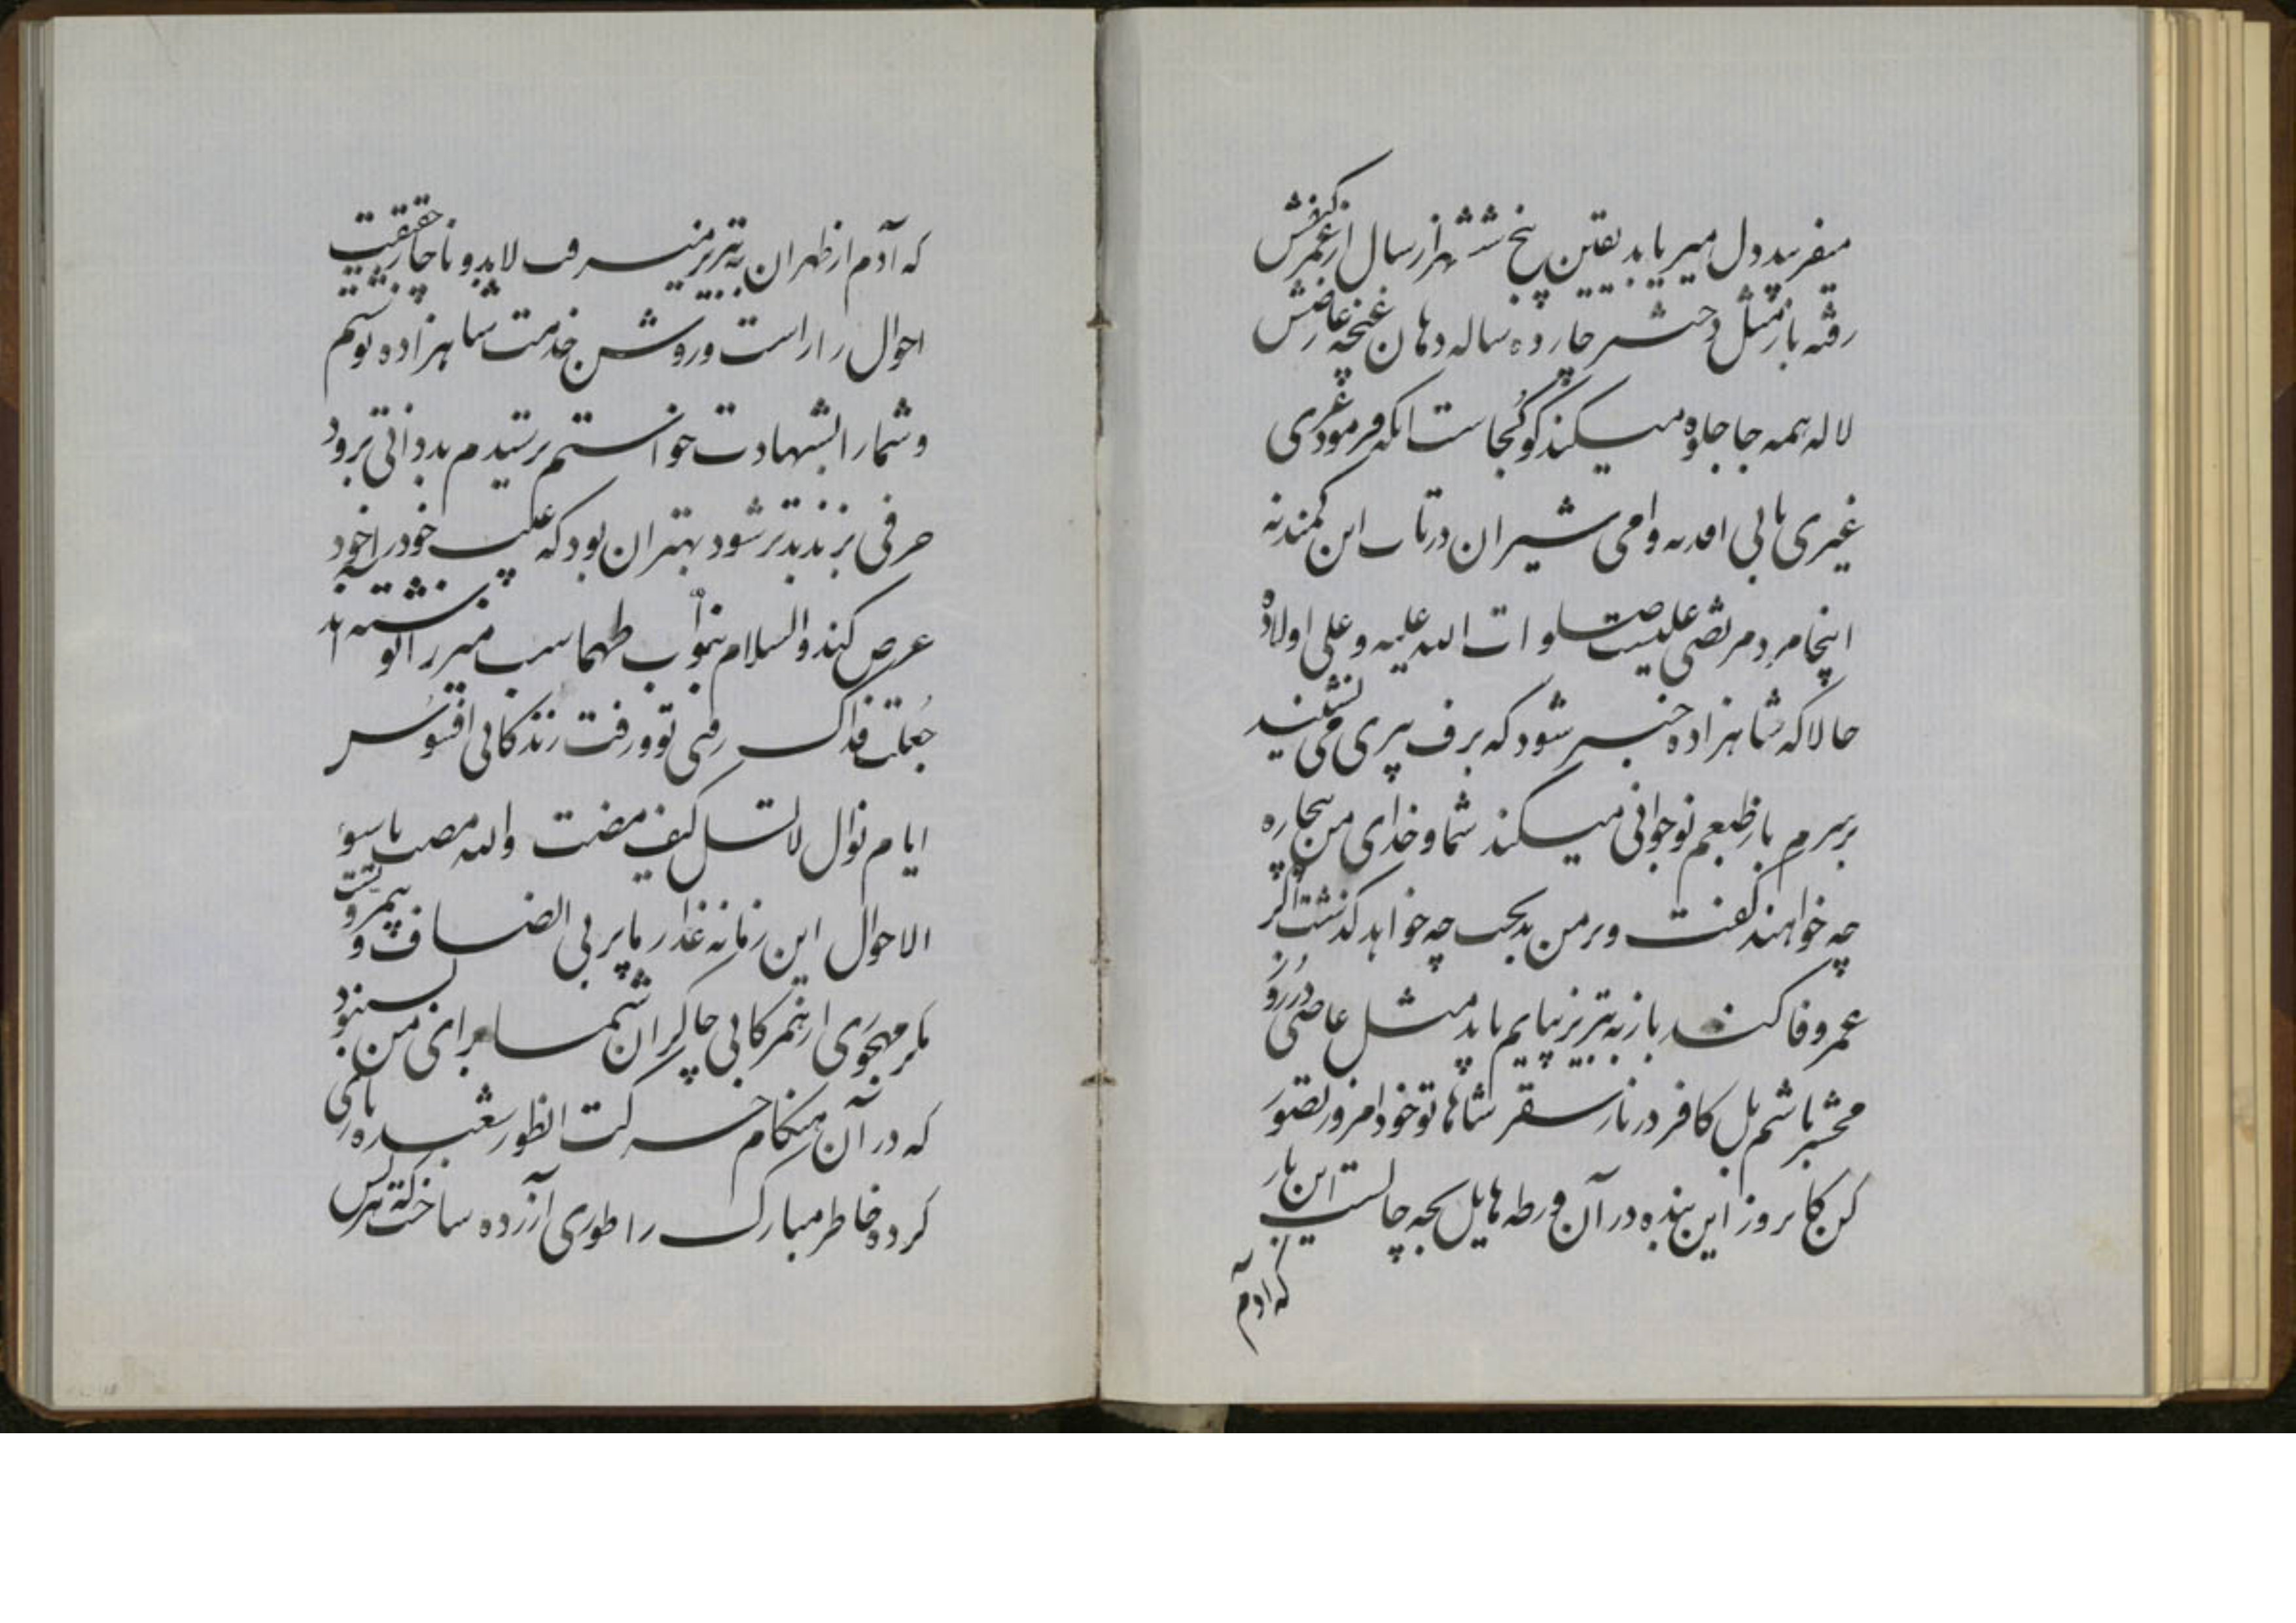 میفریبد دل میرباید بیقین پنج ششهزار سال از عمر کنفش
رفته باز مثل دختر چارده ساله دهان غنچه عارضش
لاله همه جا جلوه میکند گو کجاست انکه فرمود غری
غیری شیران در تاب این کمند نه
اینجا مرد مرتضی علیست صلوات الله علیه و علی اولاده
حالا که شاهزاده خبر شود که برف پیری می نشیند
بر سرم باز طبعم نوجوانی میکند شما و خدای من بیچاره
چه خواهند گفت و بر من بدبخت چه خواهد گذشت اگر
عمر وفا کند باز به تبریز بیایم باید مثل عاصی در روز
محشر باشم بل کافر در نار سقر شاها تو خود امروز تصور
کن کا نروز این بنده در آن ورطه هایل بچه حالست این بار
که آدم
که آدم از طهران به تبریز میرف لابد و ناچار حقیقت
احوال را راست و روشن خدمت شاهزاده نوشتم
و شما را بشهادت خواستم ترسیدم بد ذاتی برود
حرفی بزند بدتر شود بهتر ان بود که علیب خود را خود
عرض کند والسلام بنواب طهماسب میرزا نوشته اند
جعلت فداک رفتی تو و رفت زندگانی افسوس
ایام نوال لاتسل کیف مضت والله مضت باسوء
الاحوال این زمانه غدار ما پر بی انصاف و بیمروتست
مگر مهجوری از همرکابی چاکران شما برای من بس نبود
که در آن هنگام حرکت انطور شعبده بازی
کرده خاطر مبارک را طوری آزرده ساخت که هرکس